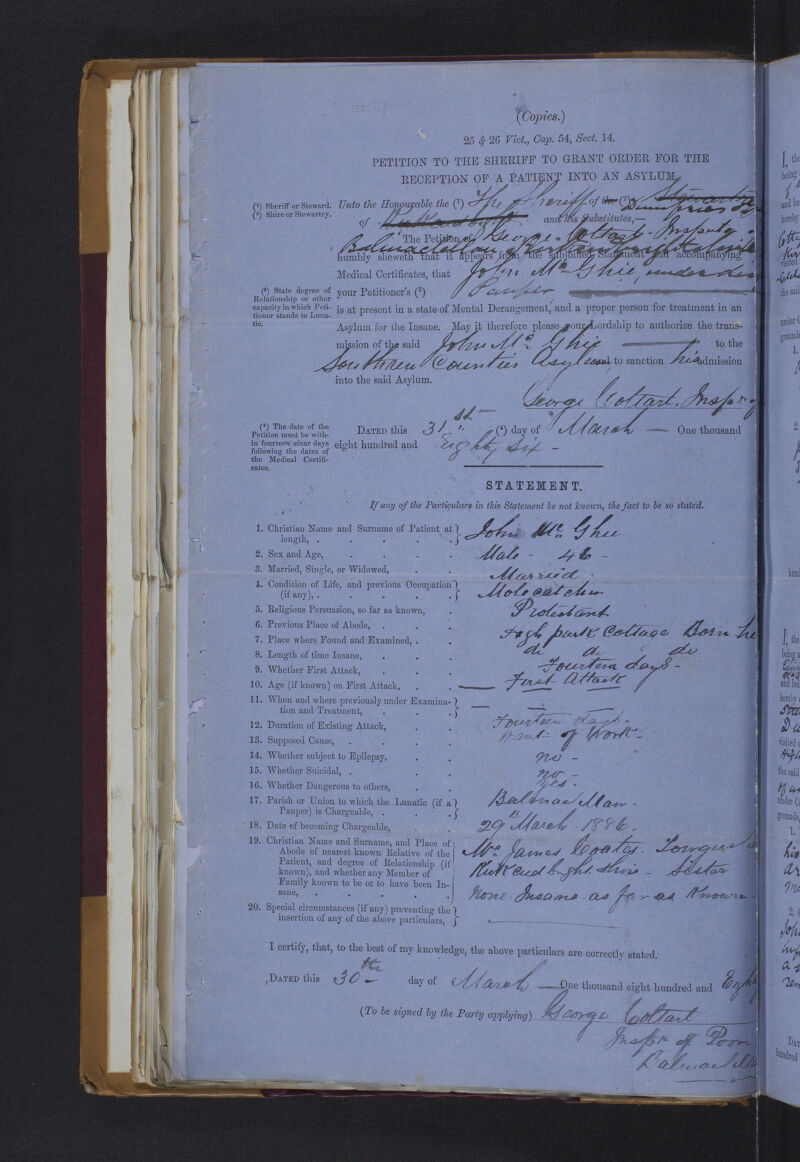 (Copies.)
25 & 26 Vict., Cap. 54, Sect. 14.
PETITION TO THE SHERIFF TO GRANT ORDER FOR THE
RECEPTION OF A PATIENT INTO AN ASYLUM.
(1) Sheriff or Steward.
(2) Shire or Stewartry.
Unto the Honourable the (1) The Sheriff of the (2) Stewartry
of Kirkcudbright Dumfries and his Substitutes,—
The Petition of George Coltart Inspector
Balmaclellan Kirkcudbrightshire
humbly sheweth that it appears from the subjoined Statement and accompanying
Medical Certificates, that John McGhie, under
(3) State degree of
Relationship or other
capacity in which Peti-
tioner stands to Luna-
tic.
your Petitioner's (3) Pauper
is at present in a state of Mental Derangement, and a proper person for treatment in an
Asylum for the Insane. May it therefore please your Lordship to authorize the trans-
mission of the said John McGhie to the
Southern Counties Asylum and to sanction his admission
into the said Asylum.
George Coltart. Inspr
(4) The date of the
Petition must be with-
in fourteen clear days
following the dates of
the Medical Certifi-
cates.
DATED this 31st (4) day of March — One thousand
eight hundred and Eighty Six -
STATEMENT.
If any of the Particulars in this Statement be not known, the fact to be so stated.
1. Christian Name and Surname of Patient at
length, . . . . . John Mc Ghie
2. Sex and Age, . . . . Male - 46 -
3. Married, Single, or Widowed, . . Married
4. Condition of Life, and previous Occupation
(if any), . . . . . Mole catcher
5. Religious Persuasion, so far as known, . Protestant
6. Previous Place of Abode, . . . High park Cottage Born
7. Place where Found and Examined, . . do do do
8. Length of time Insane, . . . Fourteen days -
9. Whether First Attack, . . . First Attack
10. Age (if known) on First Attack, . . —
11. When and where previously under Examina-
tion and Treatment, . . . — —
12. Duration of Existing Attack, . . Fourteen days -
13. Supposed Cause, . . . . Want of Work -
14. Whether subject to Epilepsy, . . no -
15. Whether Suicidal, . . . . no -
16. Whether Dangerous to others, . . yes -
17. Parish or Union to which the Lunatic (if a
Pauper) is Chargeable, . . . Balmaclellan -
18. Date of becoming Chargeable, . . 29th March 1886.
19. Christian Name and Surname, and Place of
Abode of nearest known Relative of the
Patient, and degree of Relationship (if
known), and whether any Member of
Family known to be or to have been In-
sane, . . . . .
James Coates
Kirkcudbrightshire - Sister
None Insane as far as Known
20. Special circumstances (if any) preventing the
insertion of any of the above particulars, —
I certify, that, to the best of my knowledge, the above particulars are correctly stated.
DATED this 30th day of March — One thousand eight hundred and
(To be signed by the Party applying) George Coltart
Inspr of Poor
Balmaclellan